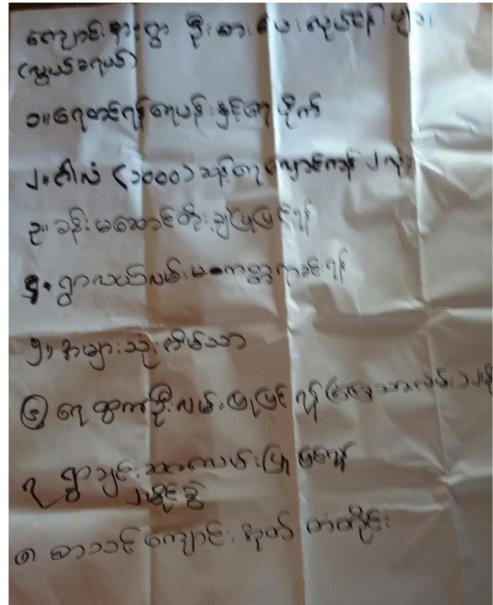 ကျောင်းစားရွာ ဦးစားပေးလုပ်ငန်းများ
(လွယ်ခရယ်)
၁။ ရေတင်ရန်ရေပန်းနှင့်ရေပိုက်
၂။ ဂါလံ (၁၀၀၀) ဆန့်ရေလှောင်ကန် ၂ လုံး
၃။ ခန်းမဆောင်တိုးချဲ့ပြုပြင်ရန်
၄။ ရွာလယ်လမ်းမကတ္တရာခင်းရန်
၅။ အများသုံးအိမ်သာ
၆ ရေထွက်ဦးလမ်းပြုပြင်ရန် (မြေသားလမ်း)
၇ ရွာချင်းဆက်လမ်းပြုပြင်ရန်
၂ မိုင်ခွဲ
၈ စာသင်ကျောင်း အုတ်တံတိုင်း